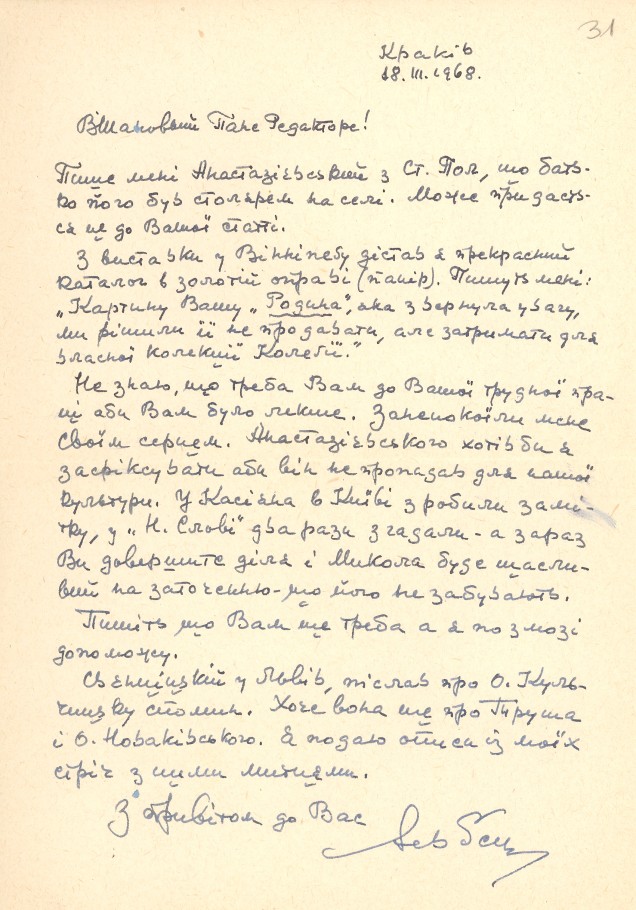 31
Краків
18.III.1968.
ВШановний Пане Редакторе!
Пише мені Анастазієвський з Ст. Пол, що бать-
ко його був столярем на селі. Може придасть-
ся це до Вашої статті.
З виставки у Вінніпегу дістав я прекрасний
каталог в золотій оправі (папір). Пишуть мені:
„Картину Вашу „Родина", яка звернула увагу,
ми рішили її не продавати, але затримати для
власної колекції Колегії."
Не знаю, що треба Вам до Вашої трудної пра-
ці аби Вам було лекше. Занепокоїли мене
своїм серцем. Анастазієвського хотів би я
зафіксувати аби він не пропадав для нашої
культури. У Касіяна в Київі зробили замі-
тку, у „Н. Слові" два рази згадали - а зараз
Ви довершите діла і Микола буде щасли-
вий на заточенню - що його не забувають.
Пишіть що Вам ще треба а я по змозі
допоможу.
Свєнціцкій у Львів, післав про О. Куль-
чицку спомин. Хоче вона ще про Труша
і О. Новаківського. Я подаю описи із моїх
стріч з цими митцями.
З привітом до Вас
Лев Ґец